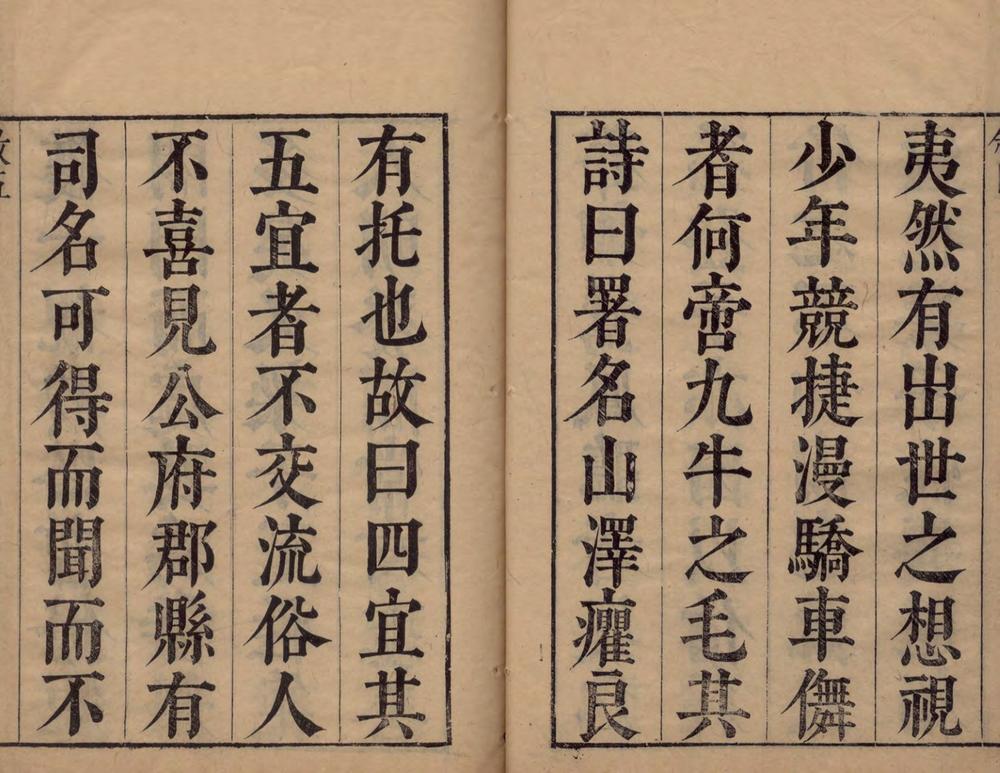 夷然有出世之想視
少年競捷漫驕車儛
者何啻九牛之毛其
詩曰署名山澤癯良
有托也故曰四宜其
五宜者不交流俗人
不喜見公府郡縣有
司名可得而聞而不